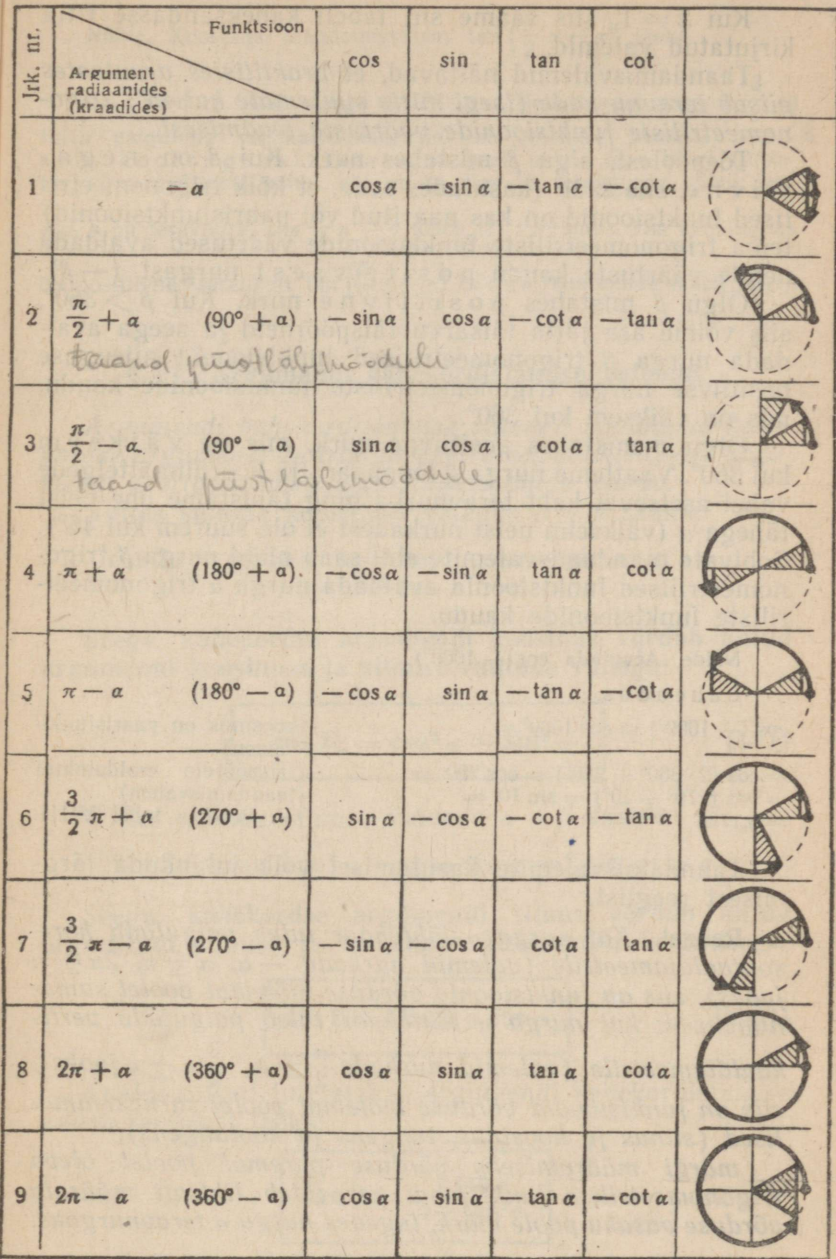 Jrk. nr.
Funktsioon
Argument
radiaanides
(kraadides)
cos sin tan cot
1 −α cos α − sin α − tan α − cot α
2 π/2 + α (90° + α) − sin α cos α − cot α − tan α
taand püstläbimõõdule
3 π/2 − α (90° − α) sin α cos α cot α tan α
taand püstläbimõõdule
4 π + α (180° + α). − cos α − sin α tan α cot α
5 π − α (180° − α) − cos α sin α − tan α − cot α
6 3/2 π + α (270° + α) sin α − cos α − cot α − tan α
7 3/2 π − α (270° − α) − sin α − cos α cot α tan α
8 2π + α (360° + α) cos α sin α tan α cot α
9 2π − α (360° − α) cos α − sin α − tan α − cot α